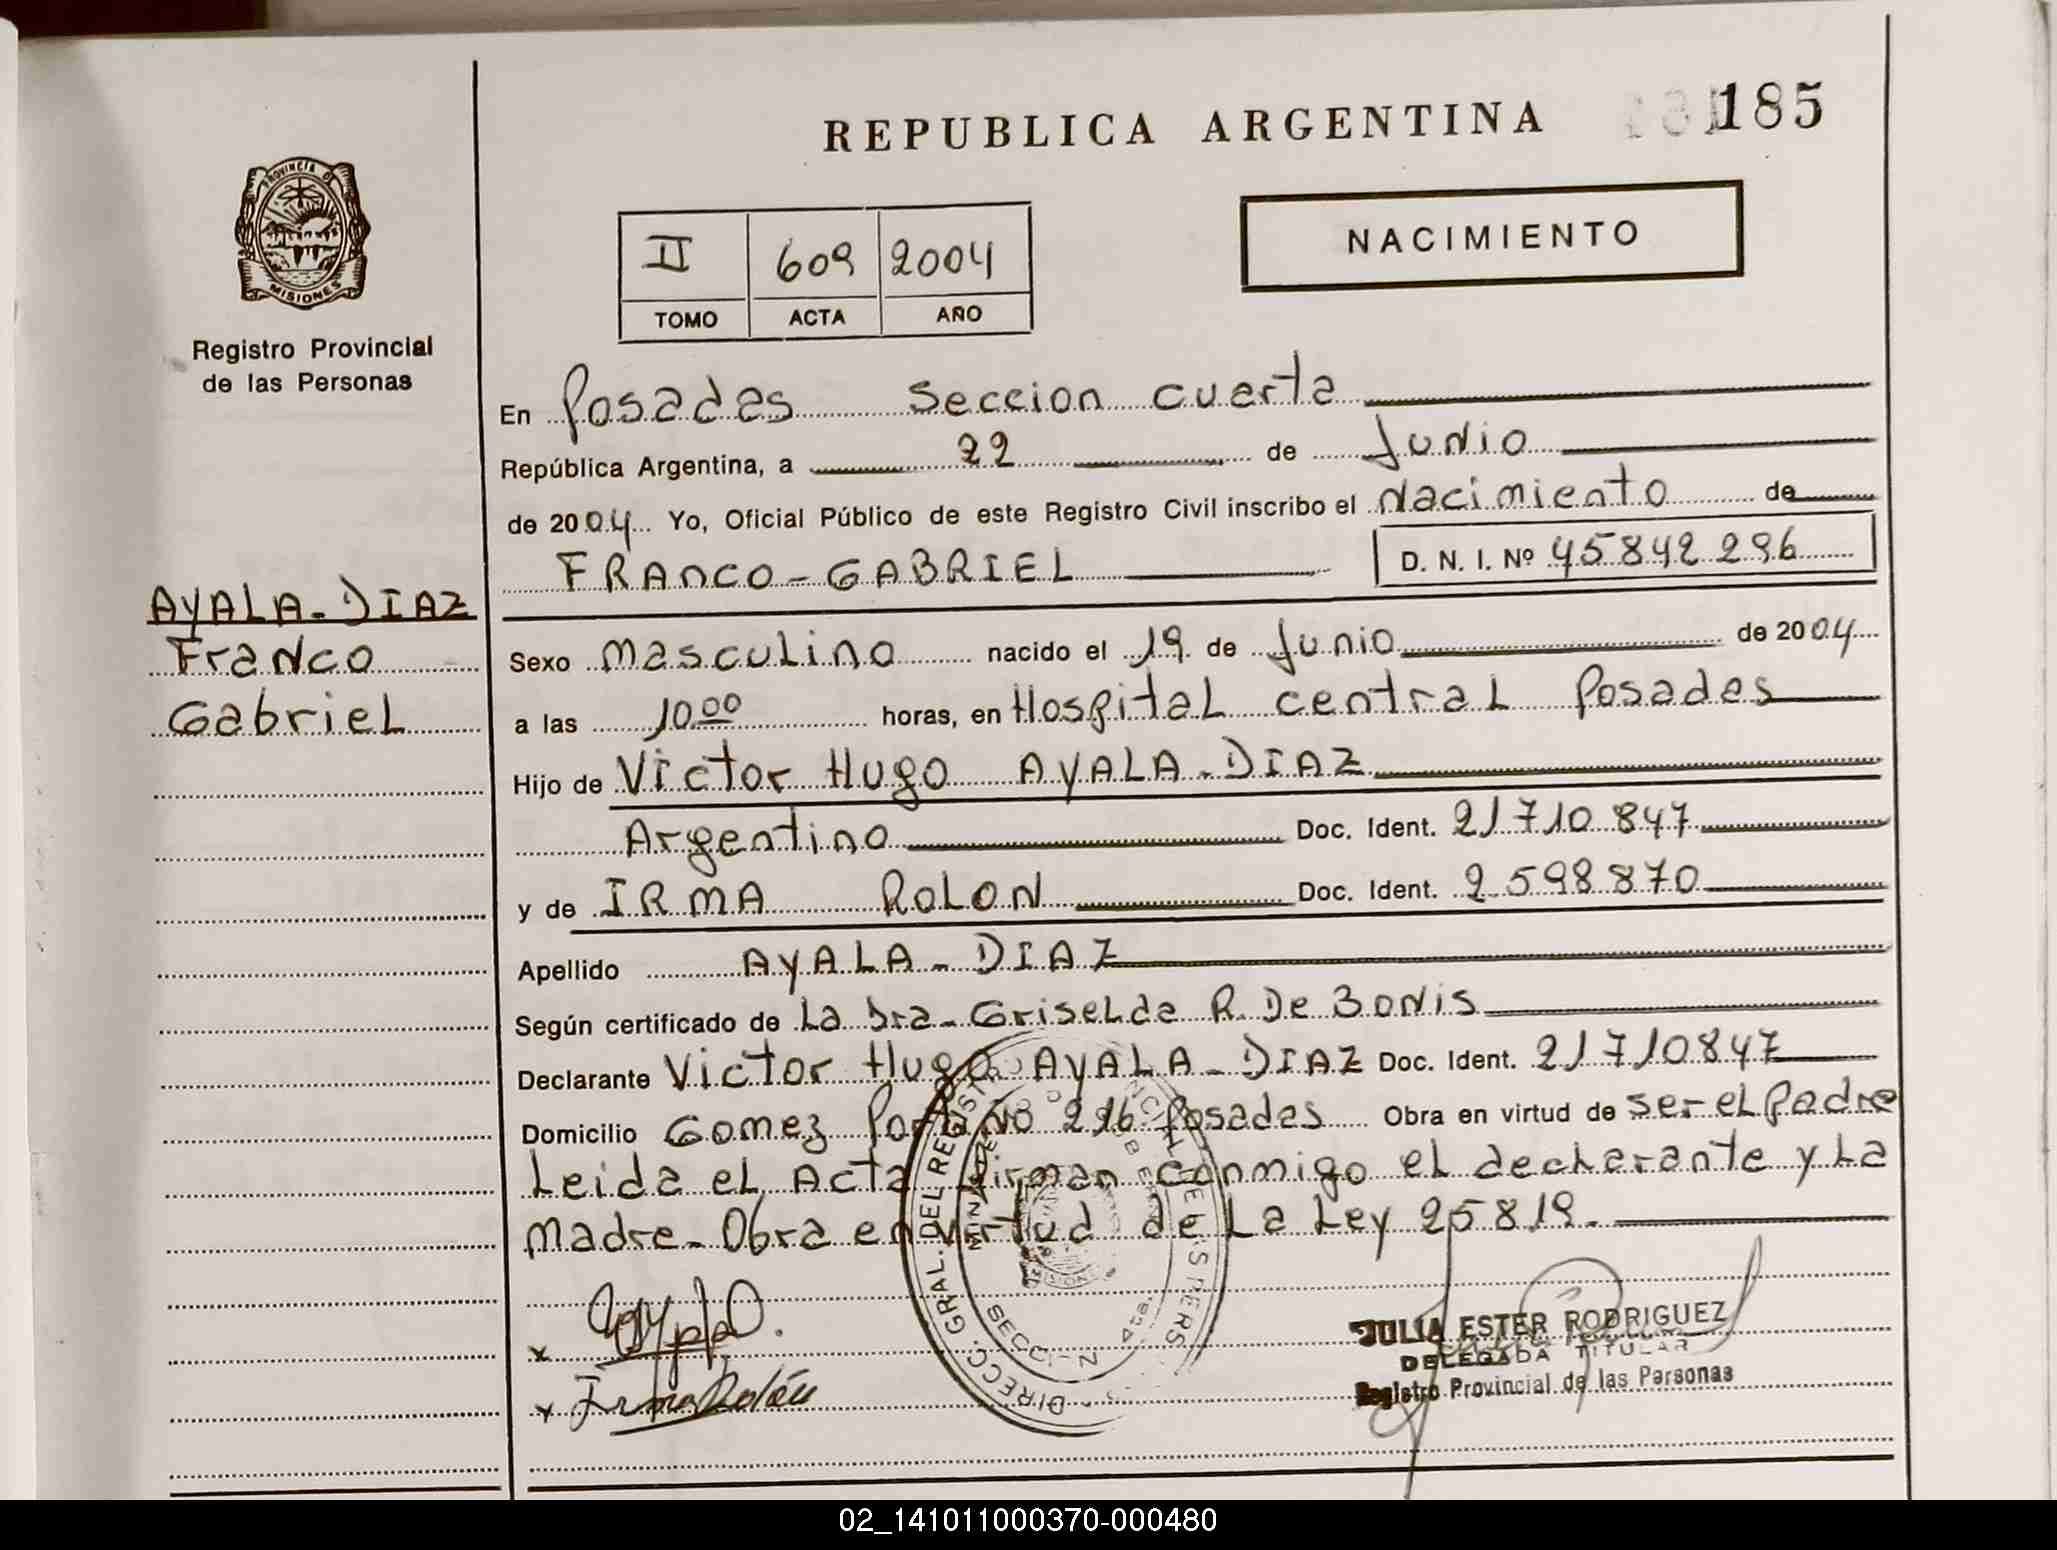 REPUBLICA ARGENTINA
185
PROVINCIA DE
MISIONES
Registro Provincial
de las Personas
II 609 2004
TOMO ACTA AÑO
NACIMIENTO
En Posadas Seccion cuarta
República Argentina, a 22 de Junio
de 2004 Yo, Oficial Público de este Registro Civil inscribo el Nacimiento de
FRANCO-GABRIEL D. N. I. Nº 45842296
AYALA-DIAZ
Franco
Gabriel
Sexo masculino nacido el 19 de Junio de 2004
a las 10.00 horas, en Hospital central Posadas
Hijo de Victor Hugo AYALA-DIAZ
Argentino Doc. Ident. 21710847
y de IRMA ROLON Doc. Ident. 2598870
Apellido AYALA-DIAZ
Según certificado de La Dra- Griselda R. De Bonis
Declarante Victor Hugo AYALA-DIAZ Doc. Ident. 21710847
Domicilio Gomez 296 Posadas Obra en virtud de ser el Padre
Leida el Acta firman conmigo el declarante y La
madre- Obra en virtud de La Ley 25819.
Irma Rolón
DIRECC. GRAL. DEL
JULIA ESTER RODRIGUEZ
DELEGADA TITULAR
Registro Provincial de las Personas
02_141011000370-000480